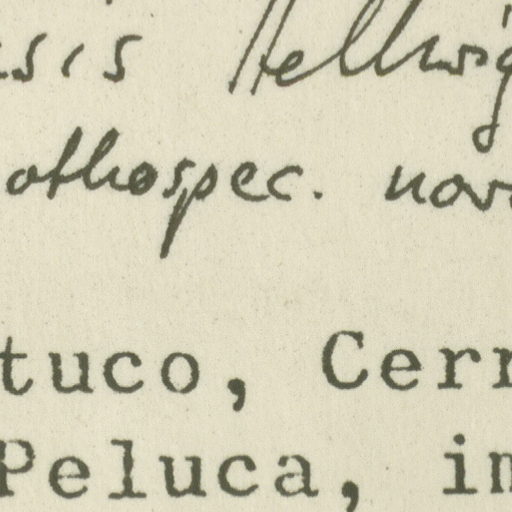 sis Hellwig
othospec. nov
tuco, Cerr
Peluca, im